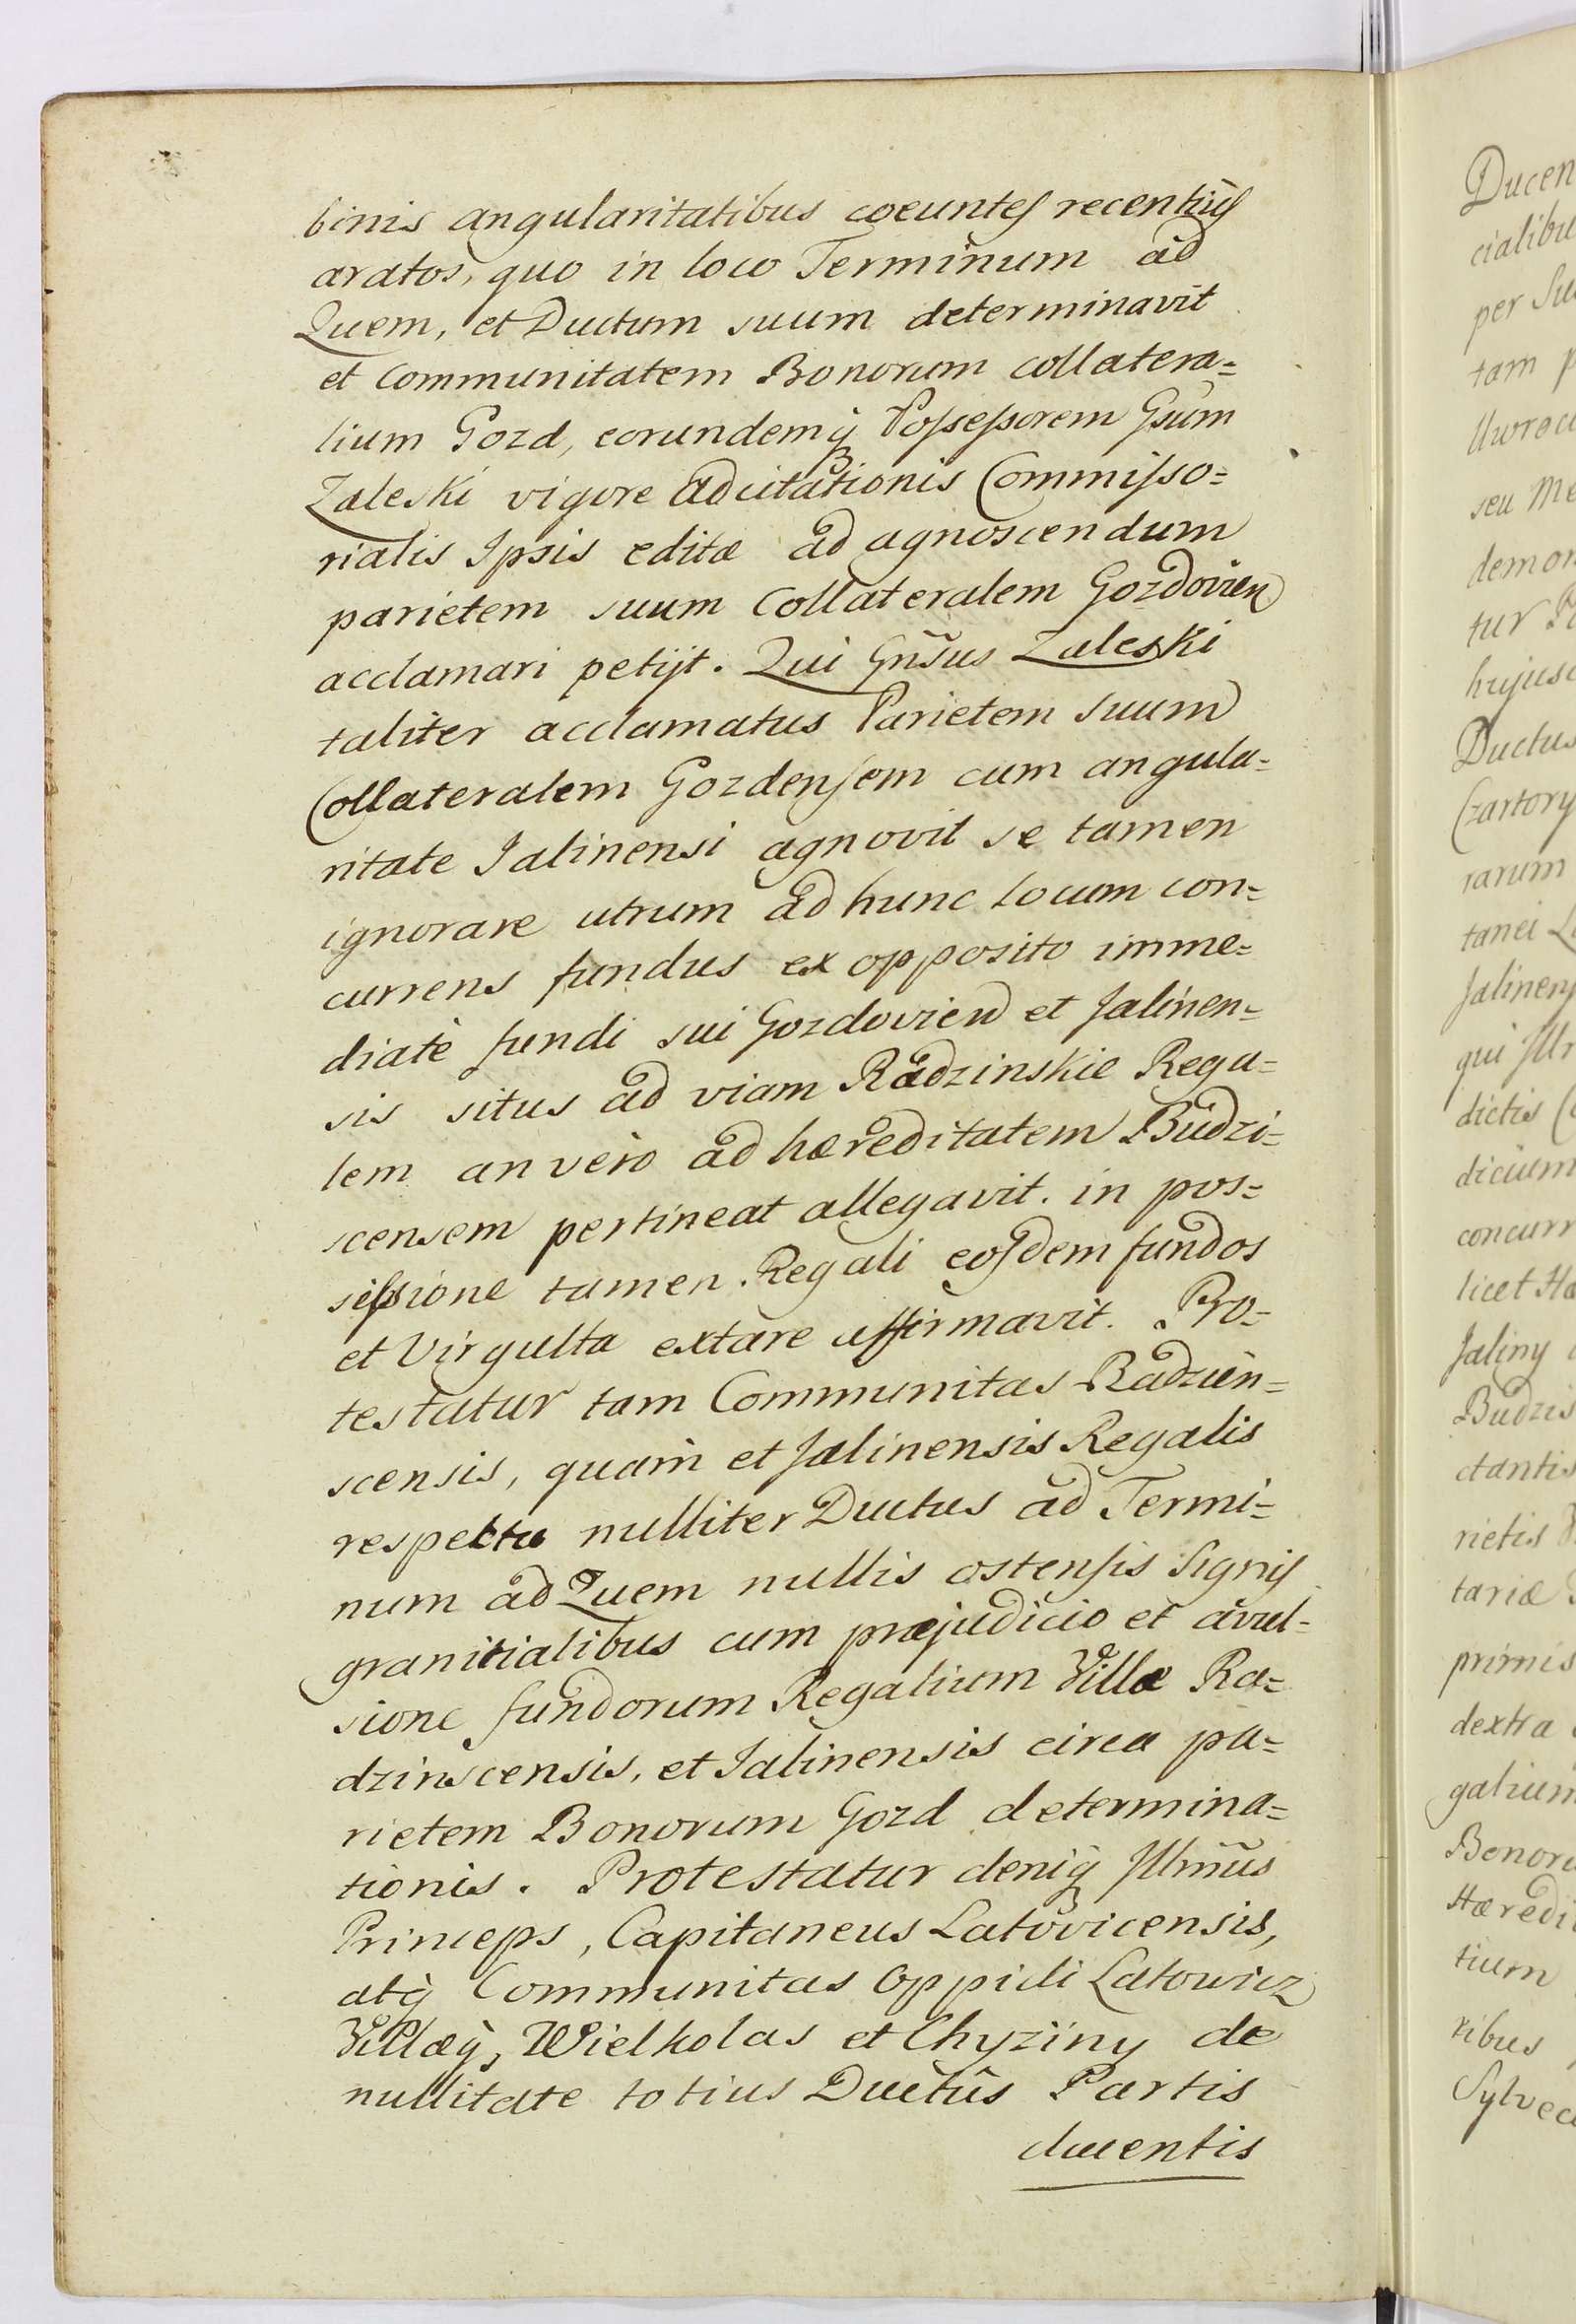 binis angularitatibus coeuntes recentiùs
aratos, quo in loco Terminum ad
Quem, et Ductum suum determinavit
et Communitatem Bonorum collatera=
lium Gozd, eorundemq̃ Possessorem Gsũm
Zaleski vigore adcitationis Commisso=
rialis Ipsis editæ ad agnoscendum
parietem suum Collateralem Gozdovien
acclamari petijt. Qui Gñsus Zaleski
taliter acclamatus Parietem suum
Collateralem Gozdensem cum angula=
ritate Jalinensi agnovit se tamen
ignorare utrum ad hunc locum con=
currens fundus ex opposito imme=
diatè fundi sui Gozdovien et Jalinen=
sis situs ad viam Radzinskie Rega=
lem an verò ad hæreditatem Budzi=
scensem pertineat allegavit. in pos=
sessione tamen Regali eosdem fundos
et Virgulta extare affirmavit. Pro=
testatur tam Communitas Radzien=
scensis, quam et Jalinensis Regalis
respectu nulliter Ductus ad Termi=
num ad Quem nullis ostensis Signis
granicialibus cum præjudicio et avul=
sione fundorum Regalium Villæ Ra=
dzinscensis, et Jalinensis circa pa=
rietem Bonorum Gozd determina=
tionis. Protestatur deniq̃ Jllm̃us
Princeps, Capitaneus Latovicensis,
atq̃ Communitas Oppidi Latowicz
Villæq̃, Wielkolas et Chyziny de
nullitate totius Ductûs Partis
ducentis
Ducen
cialibu
per Su
tam p
Uwroci
seu Me
demon
tur P
hujusc
Ductus
Czartory
rarum
tanei L
Jalinens
qui Jllr
dictis C
dicium
concurr
licet Ha
Jaliny
Budzis
ctantis
rietis
tariæ
primis
dextra
galium
Bonoru
Hæredi
tium
ribus
Sylvec